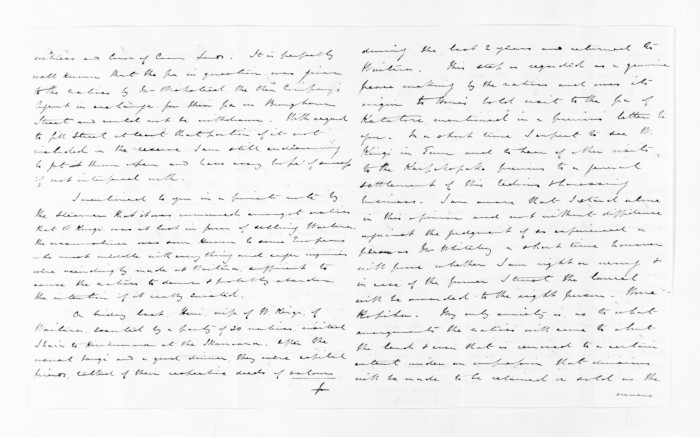 witness and Comr of Crown Lands. It is perfectly
well known that the pa in question was given
to the natives by Mr Wakefield the then Company's
Agent in exchange for their pa on Brougham
Street and could not be withdrawn. With regard
to Gill Street, at least that portion of it not
included in the reserve I am still endeavouring
to get them open and have every hope of success
if not interfered with.
I mentioned to you in a private note by
the steamer that it was rumoured amongst natives
that W Kingi was at last in favor of selling Waitara.
the was soon known to some Europeans
who must meddle with everything and eager inquiries
were accordingly made at Waitara, sufficient to
cause the natives to & probably abandon
the intention if it really existed.
On Friday last, Heni, wife of W Kingi, of
Waitara, escorted by a party of 20 natives visited
at the . After the
usual tangi and a good dinner, they were capital
friends, talked of their respective deeds of valour
during the last 2 years and returned to
Waitara. This step is regarded as a genuine
peace making by the natives and owes its
origin to bold visit to the pa of
Katatore mentioned in a previous letter to
you. In a short time I expect to see W.
Kingi in Town and to hear of other visits
to the previous to a general
settlement of this tedious & harassing
business. I am aware that I stand alone
in this opinion and not without diffidence
against the judgment of so experienced a
person as Mr Whiteley a short time however
will prove whether I am right or wrong &
in case of the former I trust the laurel
will be awarded to the right person.
. My only anxiety is, as to what
arrangements the natives will come to about
the land & even that is removed to a certain
extent under an impression that divisions
will be made to be retained or sold as the
owners